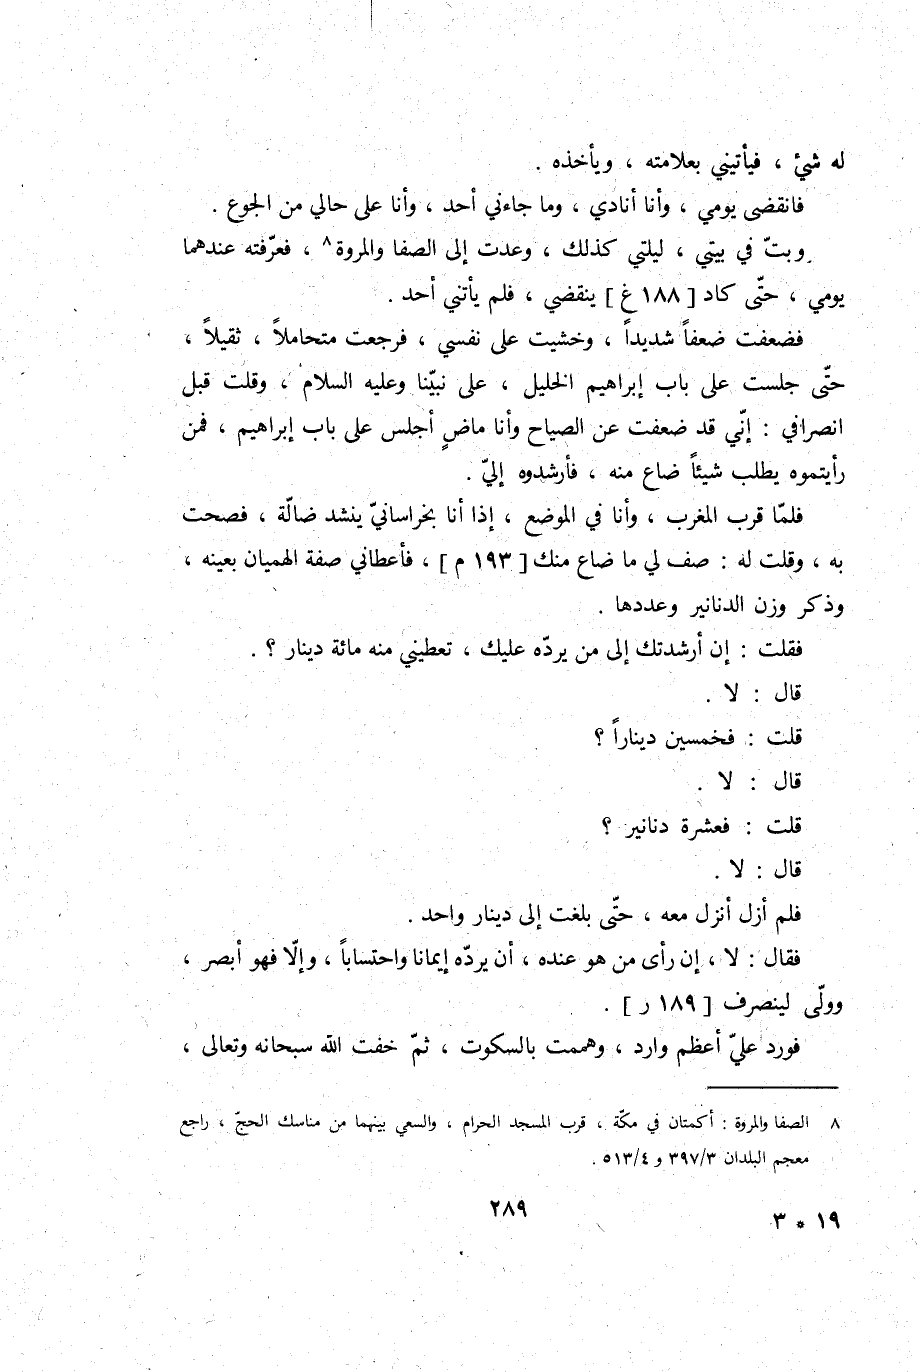 له شيْ ، فيأتيني بعلامته ، ويأخذه .
فانقضى يومي ، وأنا أنادي ، وما جاءني أحد ، وأنا على حالي من الجوع .
وبتّ في بيتي ، ليلتي كذلك ، وعدت إلى الصفا والمروة٨ ، فعرّفته عندهما
يومي ، حتّى كاد [ ١٨٨ غ ] ينقضي ، فلم يأتني أحد .
فضعفت ضعفاً شديداً ، وخشيت على نفسي ، فرجعت متحاملاً ، ثقيلاً ،
حتّى جلست على باب إبراهيم الخليل ، على نبيّنا وعليه السلام ، وقلت قبل
انصرافي : إنّي قد ضعفت عن الصياح وأنا ماضٍ أجلس على باب إبراهيم ، فمن
رأيتموه يطلب شيئاً ضاع منه ، فأرشدوه إليّ .
فلمّا قرب المغرب ، وأنا في الموضع ، إذا أنا بخراسانيّ ينشد ضالّة ، فصحت
به ، وقلت له : صف لي ما ضاع منك [ ١٩٣ م ] ، فأعطاني صفة الهميان بعينه ،
وذكر وزن الدنانير وعددها .
فقلت : إن أرشدتك إلى من يردّه عليك ، تعطيني منه مائة دينار ؟ .
قال : لا .
قلت : فخمسين ديناراً ؟
قال : لا .
قلت : فعشرة دنانير ؟
قال : لا .
فلم أزل أنزل معه ، حتّى بلغت إلى دينار واحد .
فقال : لا ، إن رأى من هو عنده ، أن يردّه إيمانا واحتساباً ، وإلّا فهو أبصر ،
وولّى لينصرف [ ١٨٩ ر ] .
فورد عليّ أعظم وارد ، وهممت بالسكوت ، ثمّ خفت الله سبحانه وتعالى ،
٨ الصفا والمروة : أكمتان في مكّة ، قرب المسجد الحرام ، والسعي بينهما من مناسك الحجّ ، راجع
معجم البلدان ٣٩٧/٣ و ٥١٣/٤ .
٢٨٩
١٩ * ٣